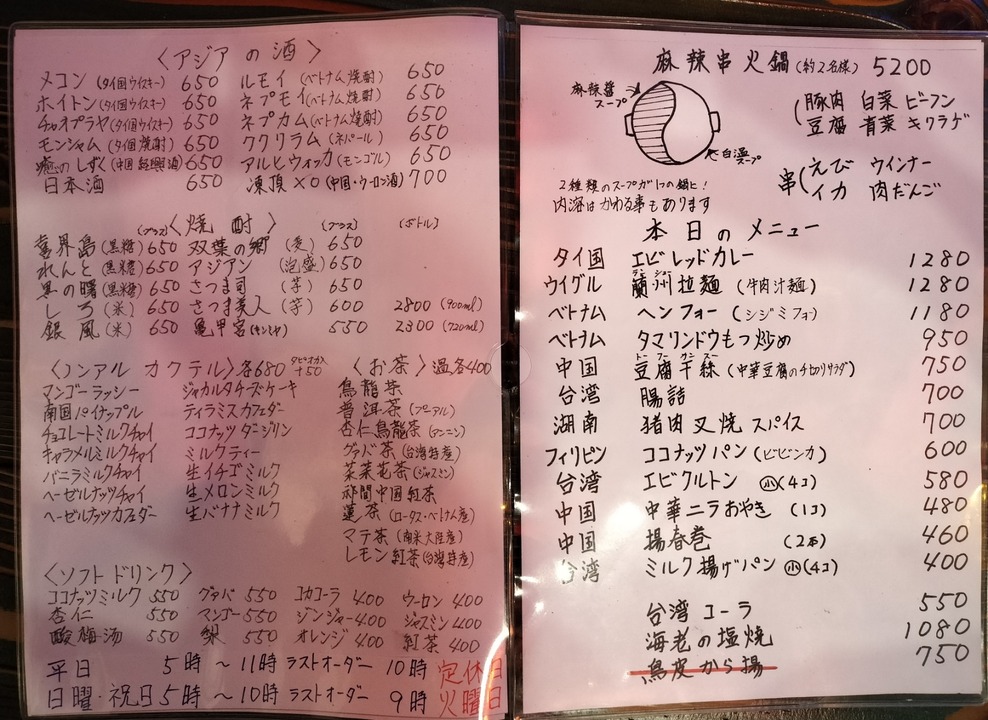 〈アジアの酒〉
メコン(タイ国ウイスキー) 650 ルモイ(ベトナム焼酎) 650
ホイトン(タイ国ウイスキー) 650 ネプモイ(ベトナム焼酎) 650
チャオプラヤ(タイ国ウイスキー) 650 ネプカム(ベトナム焼酎) 650
モンシャム(タイ国焼酎) 650 ククリラム(ネパール) 650
癒のしずく(中国紹興酒) 650 アルヒウォッカ(モンゴル) 650
日本酒 650 凍頂XO(中国・ウーロン酒) 700
(グラス)〈焼酎〉(グラス) (ボトル)
喜界島(黒糖) 650 双葉の郷(麦) 650
れんと(黒糖) 650 アジアン(泡盛) 650
里の曙(黒糖) 650 さつま司(芋) 650
しろ(米) 650 さつま美人(芋) 600 2800(900ml)
銀風(米) 650 亀甲宮(キンミヤ) 550 2300(720ml)
〈ノンアルカクテル〉各680 タピオカ入+50
マンゴーラッシー ジャカルタチーズケーキ
南国パイナップル ティラミスカフェダー
チョコレートミルクチャイ ココナッツダージリン
キャラメルミルクチャイ ミルクティー
バニラミルクチャイ 生イチゴミルク
ヘーゼルナッツチャイ 生メロンミルク
ヘーゼルナッツカフェダー 生バナナミルク
〈お茶〉温各400
烏龍茶
普洱茶(プーアル)
杏仁烏龍茶(アンニン)
グァバ茶(台湾特産)
茉莉花茶(ジャスミン)
祁門中国紅茶
蓮茶(ロータス・ベトナム産)
マテ茶(南米大陸産)
レモン紅茶(台湾特産)
〈ソフトドリンク〉
ココナッツミルク 550 グァバ 550 コカコーラ 400 ウーロン 400
杏仁 550 マンゴー 550 ジンジャー 400 ジャスミン 400
酸梅汤 550 梨 550 オレンジ 400 紅茶 400
平日 5時〜11時 ラストオーダー 10時 定休日
日曜・祝日 5時〜10時 ラストオーダー 9時 火曜日
麻辣串火鍋(約2名様) 5200
麻辣醤スープ
白湯スープ
豚肉 白菜 ビーフン
豆腐 青菜 キクラゲ
串(えび ウインナー
イカ 肉だんご
2種類のスープが1つの鍋に!
内容はかわる事もあります
本日のメニュー
タイ国 エビレッドカレー 1280
ウイグル 蘭州拉麺(牛肉汁麺) 1280
ベトナム ヘンフォー(シジミフォ) 1180
ベトナム タマリンドウもつ炒め 950
中国 豆腐干絲(中華豆腐のチセリサラダ) 750
台湾 腸詰 700
湖南 猪肉叉焼スパイス 700
フィリピン ココナツパン(ビビンカ) 600
台湾 エビクルトン 小(4コ) 580
中国 中華ニラおやき (1コ) 480
中国 揚春巻 (2本) 460
台湾 ミルク揚げパン 小(4コ) 400
台湾コーラ 550
海老の塩焼 1080
鳥皮から揚 750